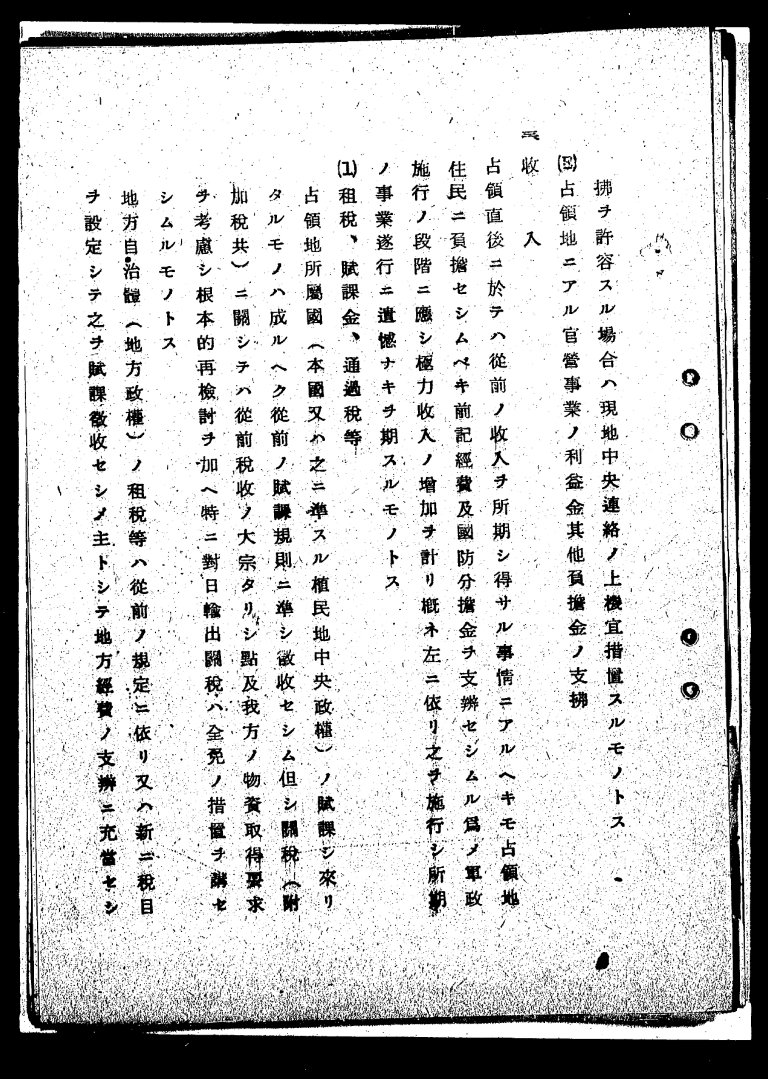 拂ヲ許容スル場合ハ現地中央連絡ノ上機宜措置スルモノトス
占領地ニアル官營事業ノ利益金其他負擔金ノ支拂
三收入
占領直後ニ於テハ從前ノ收入ヲ所期シ得サル事情ニアルヘキモ占領地
住民ニ負擔セシムベキ前記經費及國防分擔金ヲ支辨セシムル爲メ軍政
施行ノ段階ニ應シ極力收入ノ增加ヲ計リ概ネ左ニ依リ之ヲ施行シ所期
ノ事業遂行ニ遺憾ナキヲ期スルモノトス
(1)租稅、賦課金、通過稅等
占領地所屬國(本國又ハ之ニ準スル植民地中央政權)ノ賦課シ來リ
タルモノハ成ルヘク從前ノ賦課規則ニ準シ徵收セシム但シ關稅(附
加稅共)ニ關シテハ從前稅收ノ大宗タリシ點及我方ノ物資取得要求
ヲ考慮シ根本的再檢討ヲ加ヘ特ニ對日輸出關稅ハ全免ノ措置ヲ講セ
シムルモノトス
地方自治體(地方政權)ノ租稅等ハ從前ノ規定ニ依リ又ハ新ニ稅目
ヲ設定シテ之ヲ賦課徵收セシメ主トシテ地方經費ノ支辨ニ充當セシ